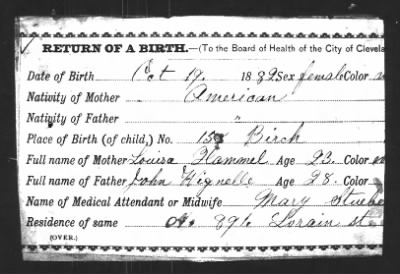 RETURN OF A BIRTH.—(To the Board of Health of the City of Clevela
Date of Birth Oct 19. 1882 Sex female Color
Nativity of Mother American
Nativity of Father "
Place of Birth (of child,) No. Birch
Full name of Mother Louisa Hammel Age 23. Color
Full name of Father John Age 28. Color
Name of Medical Attendant or Midwife Mary
Residence of same No. 896 Lorain st
(OVER.)